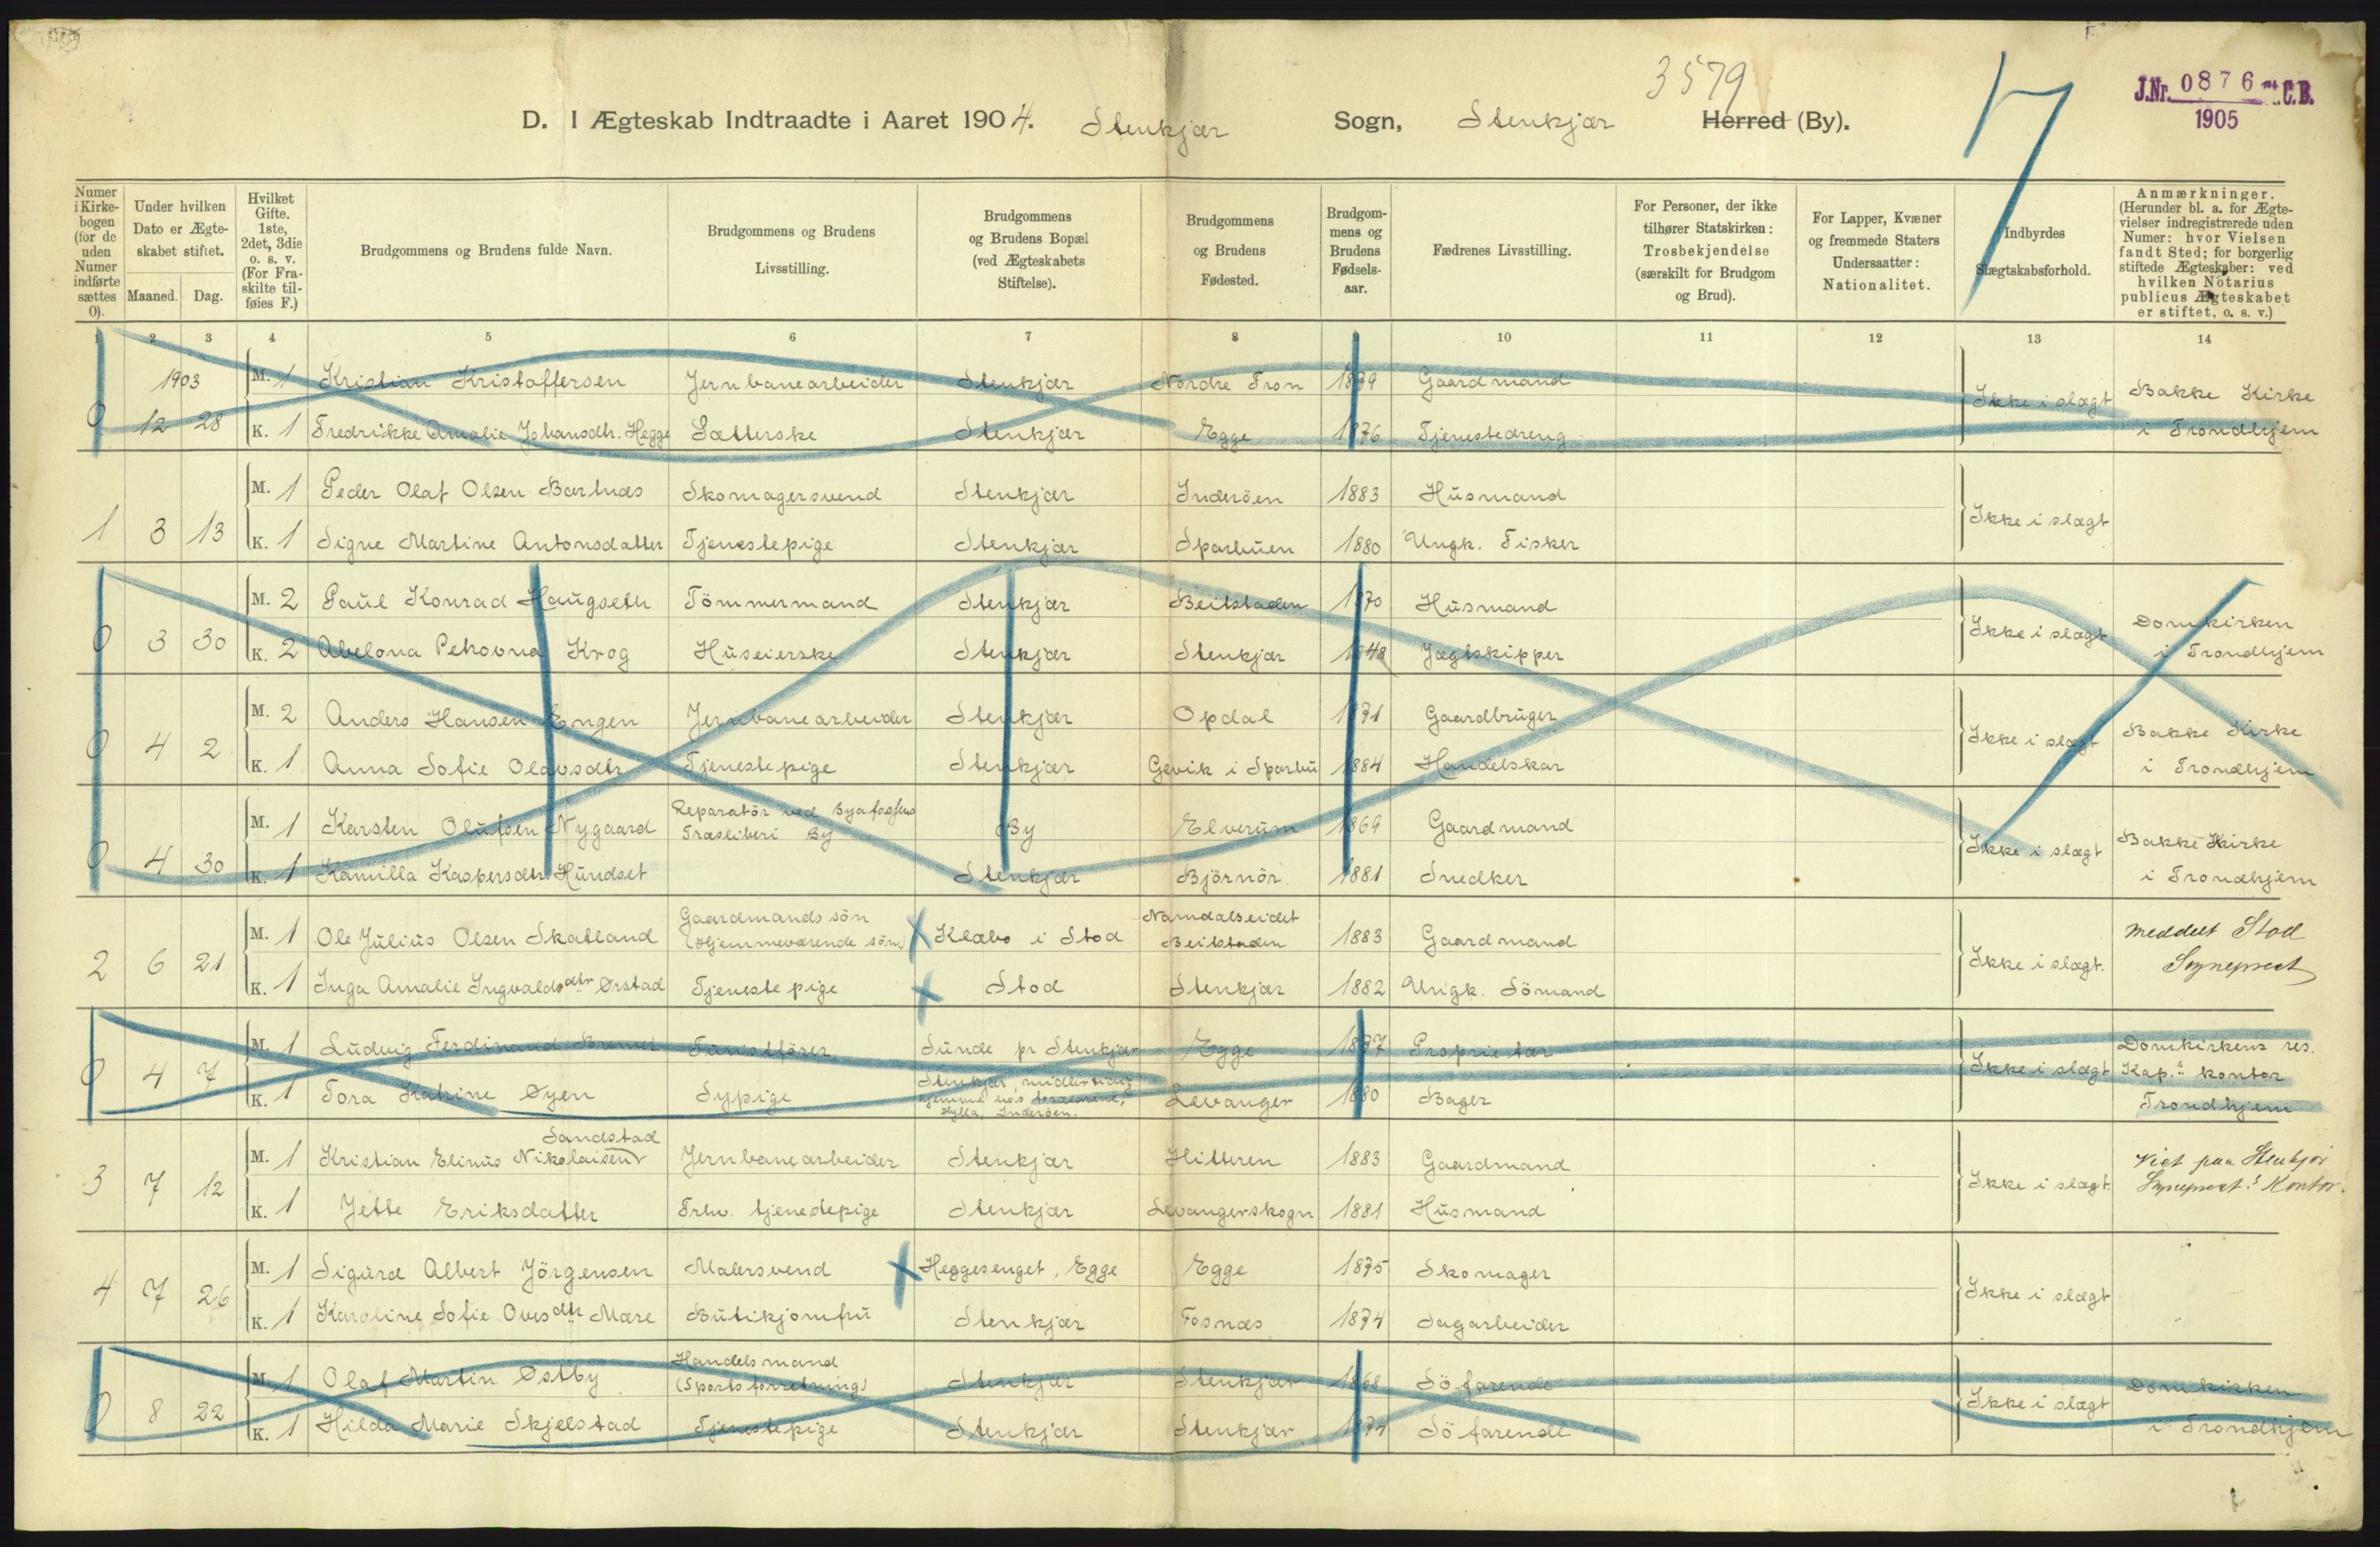 3579
J.Nr. 0876 C.B.
1905
7
D. I Ægteskab Indtraadte i Aaret 1904. Stenkjær Sogn, Stenkjær Herred (By).
Numer i Kirkebogen (for de uden Numer indførte sættes 0).
Under hvilken Dato er Ægteskabet stiftet.
Maaned. Dag.
Hvilket Gifte. 1ste, 2det, 3die o. s. v. (For Fraskilte tilføies F.)
Brudgommens og Brudens fulde Navn.
Brudgommens og Brudens Livsstilling.
Brudgommens og Brudens Bopæl (ved Ægteskabets Stiftelse).
Brudgommens og Brudens Fødested.
Brudgommens og Brudens Fødselsaar.
Fædrenes Livsstilling.
For Personer, der ikke tilhører Statskirken: Trosbekjendelse (særskilt for Brudgom og Brud).
For Lapper, Kvæner og fremmede Staters Undersaatter: Nationalitet.
Indbyrdes Slægtskabsforhold.
Anmærkninger. (Herunder bl. a. for Ægtevielser indregistrerede uden Numer: hvor Vielsen fandt Sted; for borgerlig stiftede Ægteskaber: ved hvilken Notarius publicus Ægteskabet er stiftet, o. s. v.)
1 2 3 4 5 6 7 8 9 10 11 12 13 14
1903 M. 1 Kristian Kristoffersen Jernbanearbeider Stenkjær Nordre Tron 1879 Gaardmand Ikke i slægt Bakke Kirke
0 12 28 K. 1 Fredrikke Amalie Johansdtr. Hegge Sætterske Stenkjær Egge 1876 Tjenestedreng i Trondhjem
M. 1 Peder Olaf Olsen Bartnæs Skomagersvend Stenkjær Inderöen 1883 Husmand Ikke i slægt
1 3 13 K. 1 Signe Martine Antonsdatter Tjenestepige Stenkjær Sparbuen 1880 Ungk. Fisker
M. 2 Paul Konrad Haugseth Tömmermand Stenkjær Beitstaden 1870 Husmand Ikke i slægt Domkirken
0 3 30 K. 2 Abelona Petrovna Krog Huseierske Stenkjær Stenkjær 1848 Jægtskipper i Trondhjem
M. 2 Anders Hansen Engen Jernbanearbeider Stenkjær Opdal 1871 Gaardbruger Ikke i slægt Bakke Kirke
0 4 2 K. 1 Anna Sofie Olavsdtr Tjenestepige Stenkjær Gjevik i Sparbu 1884 Handelskar i Trondhjem
Reparatör ved Byafossens
M. 1 Karsten Olufsen Nygaard Træsliberi By By Elverum 1869 Gaardmand Ikke i slægt Bakke Kirke
0 4 30 K. 1 Kamilla Kaspersdtr. Hundset Stenkjær Björnör 1881 Snedker i Trondhjem
Gaardmandssön Namdalseidet
M. 1 Ole Julius Olsen Skatland (hjemmeværende sön) Klæbo i Stod Beitstaden 1883 Gaardmand Ikke i slægt. meddelt Stod
2 6 21 K. 1 Inga Amalie Ingvaldsdtr Ørstad Tjenestepige Stod Stenkjær 1882 Ungk. Sömand Sogneprest
M. 1 Ludvig Ferdinand Bremer Turistförer Sunde pr Stenkjær Egge 1877 Proprietær Ikke i slægt Domkirkens res.
Kap.s kontor
0 4 7 K. 1 Tora Katrine Øyen Sypige Stenkjær, midlertidig hjemme hos forældrene, Hylla, Inderöen. Levanger 1880 Bager Trondhjem
Sandstad
M. 1 Kristian Elinus Nikolaisen Jernbanearbeider Stenkjær Hitteren 1883 Gaardmand Ikke i slægt. Viet paa Stenkjær
3 7 12 K. 1 Jette Eriksdatter Frhv. tjenestepige Stenkjær Levangerskogn 1881 Husmand Sogneprest.s Kontor.
M. 1 Sigurd Albert Jörgensen Malersvend Heggesenget, Egge Egge 1875 Skomager Ikke i slægt
4 7 26 K. 1 Karoline Sofie Ovesdtr Mære Butikjomfru Stenkjær Fosnæs 1874 Sagarbeider
Handelsmand
M. 1 Olaf Martin Østby (Sportsforretning) Stenkjær Stenkjær 1868 Söfarende Ikke i slægt Domkirken
0 8 22 K. 1 Hilda Marie Skjelstad Tjenestepige Stenkjær Stenkjær 1874 Söfarende i Trondhjem